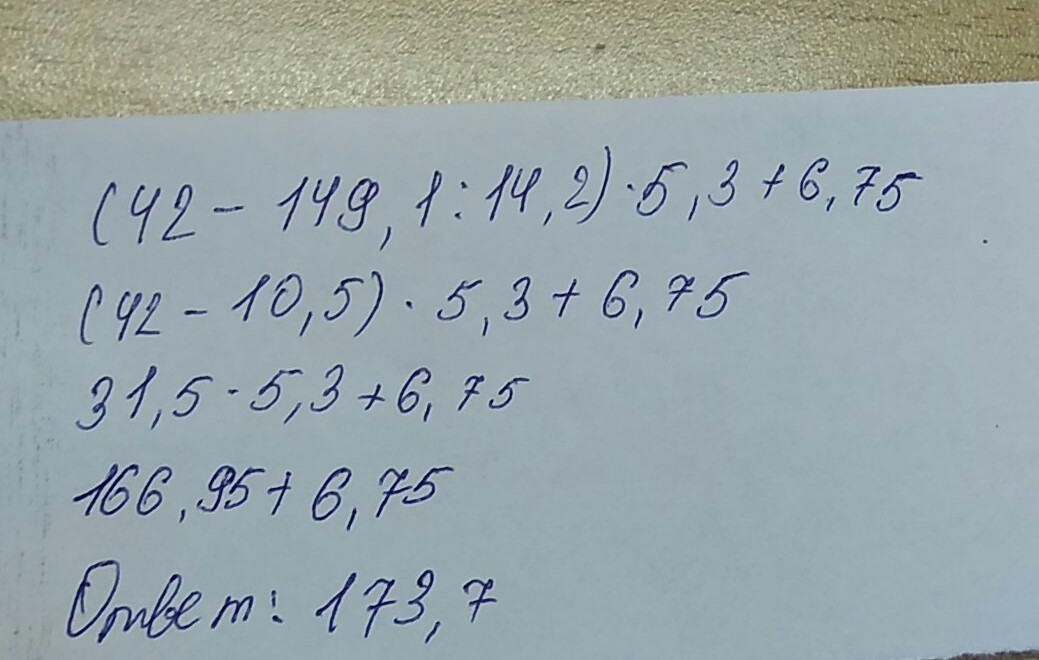 (42 - 149,1 : 14,2) · 5,3 + 6,75
(42 - 10,5) · 5,3 + 6,75
31,5 · 5,3 + 6,75
166,95 + 6,75
Ответ: 173,7